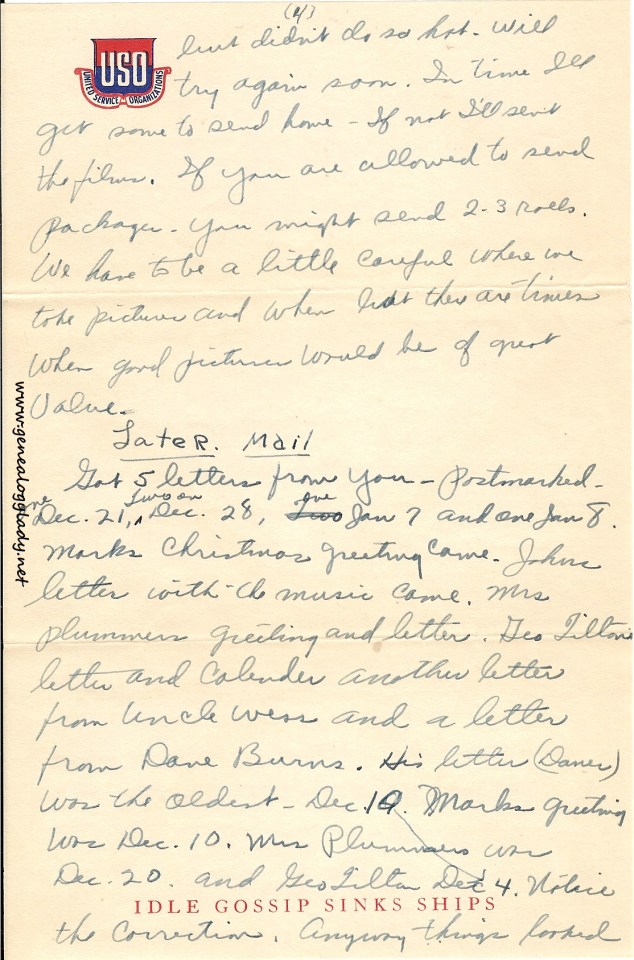 (4)
USO
UNITED SERVICE ORGANIZATIONS
but didn't do so hot. Will
try again soon. In time I'll
get some to send home - If not I'll sent
the films. If you are allowed to send
packages - you might send 2-3 rolls.
We have to be a little careful where we
take pictures and when but ther are times
when good pictures would be of great
Value.
Later. Mail
Got 5 letters from you - Postmarked -
one two on one
Dec. 21, Dec. 28, Two Jan 7 and one Jan 8.
Marks Christmas greeting came. Johns
letter with the music came. Mrs
Plummers greeting and letter. Geo Tiltons
letter and Calender another letter
from Uncle Wess and a letter
from Dave Burns. His letter (Daves)
was the oldest - Dec. 10. Marks greeting
was Dec. 10. Mrs Plummers was
Dec. 20. and Geo Tilton Dec 4. Notice
IDLE GOSSIP SINKS SHIPS
the correction. Anyway things looked
www.genealogylady.net